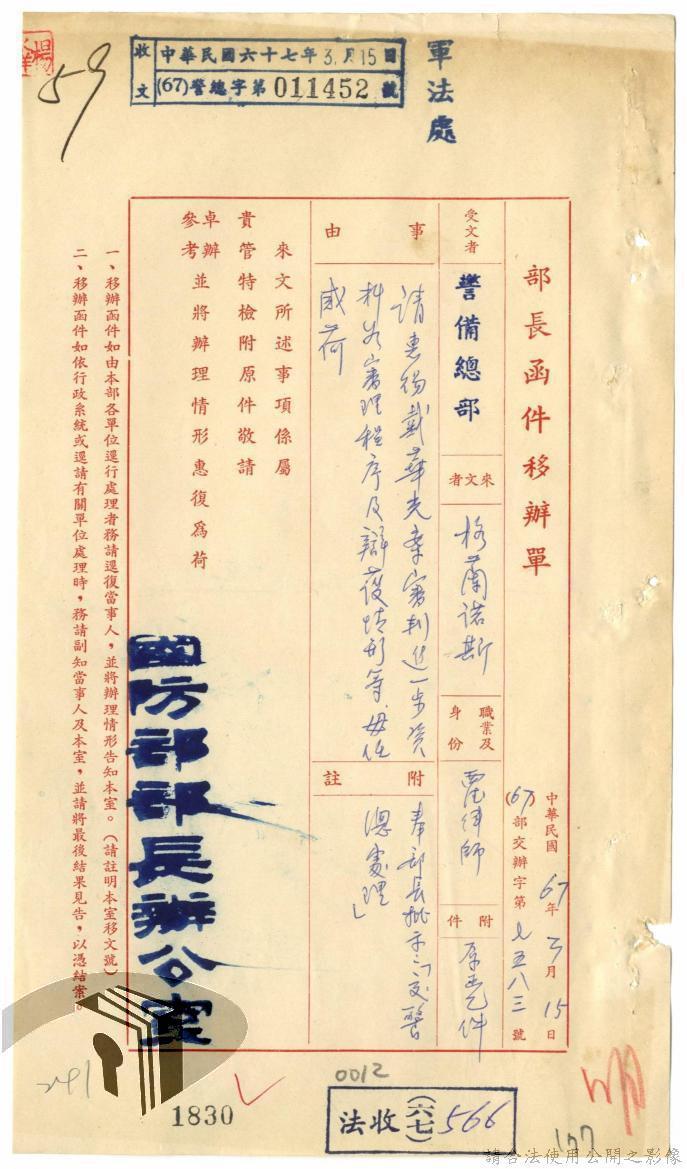 收文
中華民國六十七年3.月15日
(67)警總字第011452號
軍法處
59
部長函件移辦單
中華民國67年3月15日
(67)部交辦字第 五八三號
受文者
警備總部
來文者
格蘭諾斯
職業及身份
律師
附件
事由
請惠賜戴華光案審判進一步資
料於審理程序及辯護情形等,毋任
感荷
附註
奉部長批示「交警
總處理」
來文所述事項係屬
貴管特檢附原件敬請
卓辦
參考
並將辦理情形惠復為荷
國防部部長辦公室
一、移辦函件如由本部各單位逕行處理者務請逕復當事人,並將辦理情形告知本室。(請註明本室移文號)
二、移辦函件如依行政系統或逕請有關單位處理時,務請副知當事人及本室,並請將最後結果見告,以憑結案。
0012
1830
法收(六七)566
177
請合法使用公開之影像